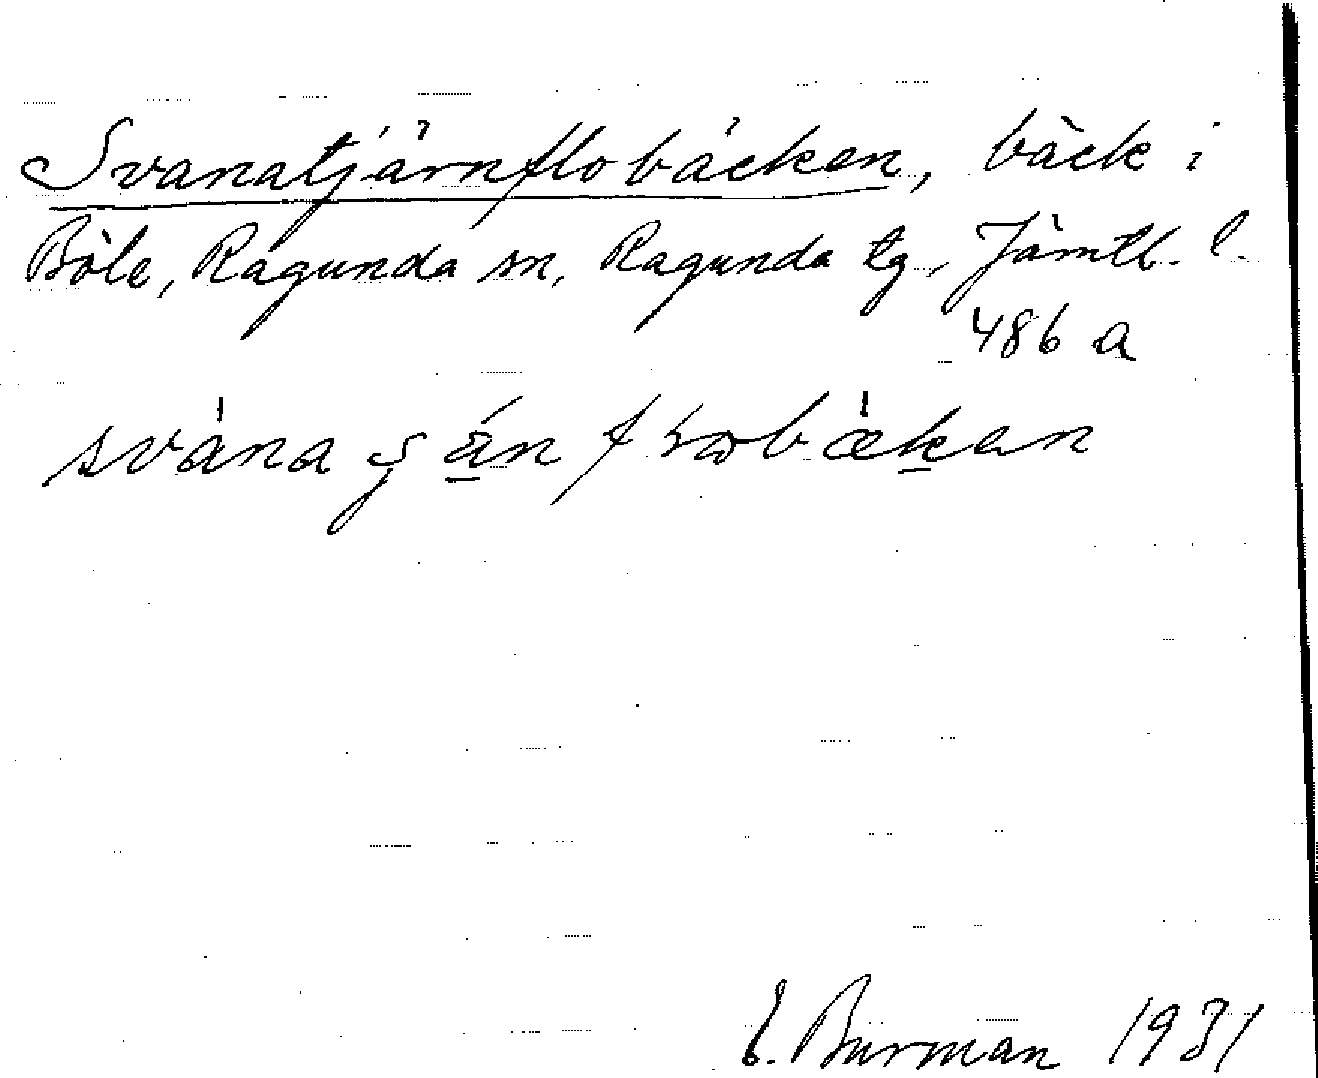 Svanatjärnflobäcken, bäck i
Böle, Ragunda sn, Ragunda tg., Jämtl. l.
486 a
E. Burman 1931